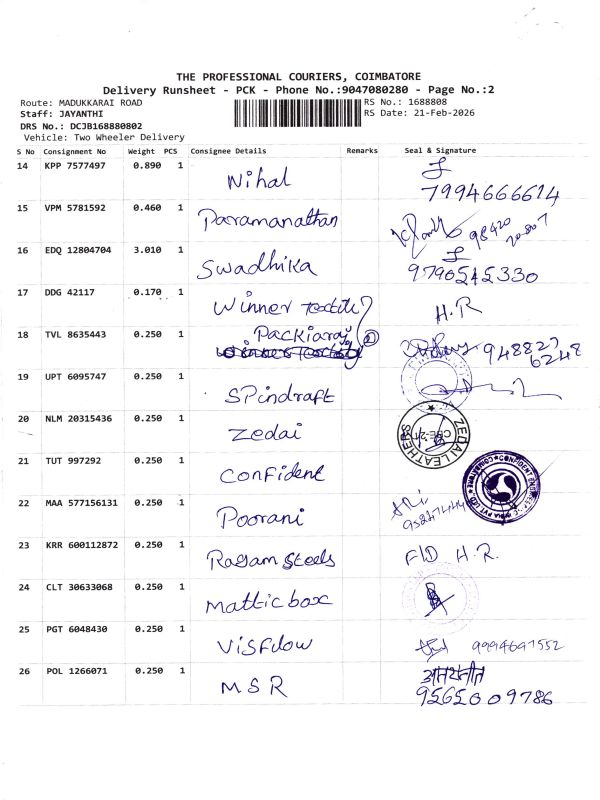 THE PROFESSIONAL COURIERS, COIMBATORE
Delivery Runsheet - PCK - Phone No.:9047080280 - Page No.:2
Route: MADUKKARAI ROAD
Staff: JAYANTHI
DRS No.: DCJB168880802
Vehicle: Two Wheeler Delivery
RS No.: 1688808
RS Date: 21-Feb-2026
S No Consignment No Weight PCS Consignee Details Remarks Seal & Signature
14 KPP 7577497 0.890 1 Nihal 7994666614
15 VPM 5781592 0.460 1 Paramanathan 98420
16 EDQ 12804704 3.010 1 Swadhika 9790545330
17 DDG 42117 0.170 1 Winner H.R
18 TVL 8635443 0.250 1 Packiaraj 948827
6248
19 UPT 6095747 0.250 1 Spindraft
20 NLM 20315436 0.250 1 Zedai ZEDAI LEATHER
21 TUT 997292 0.250 1 Confident
22 MAA 577156131 0.250 1 Poorani
23 KRR 600112872 0.250 1 Rasam Steels F/D H.R.
24 CLT 30633068 0.250 1 Mattic box
25 PGT 6048430 0.250 1 Visflow 9994691552
26 POL 1266071 0.250 1 MSR
9565009786